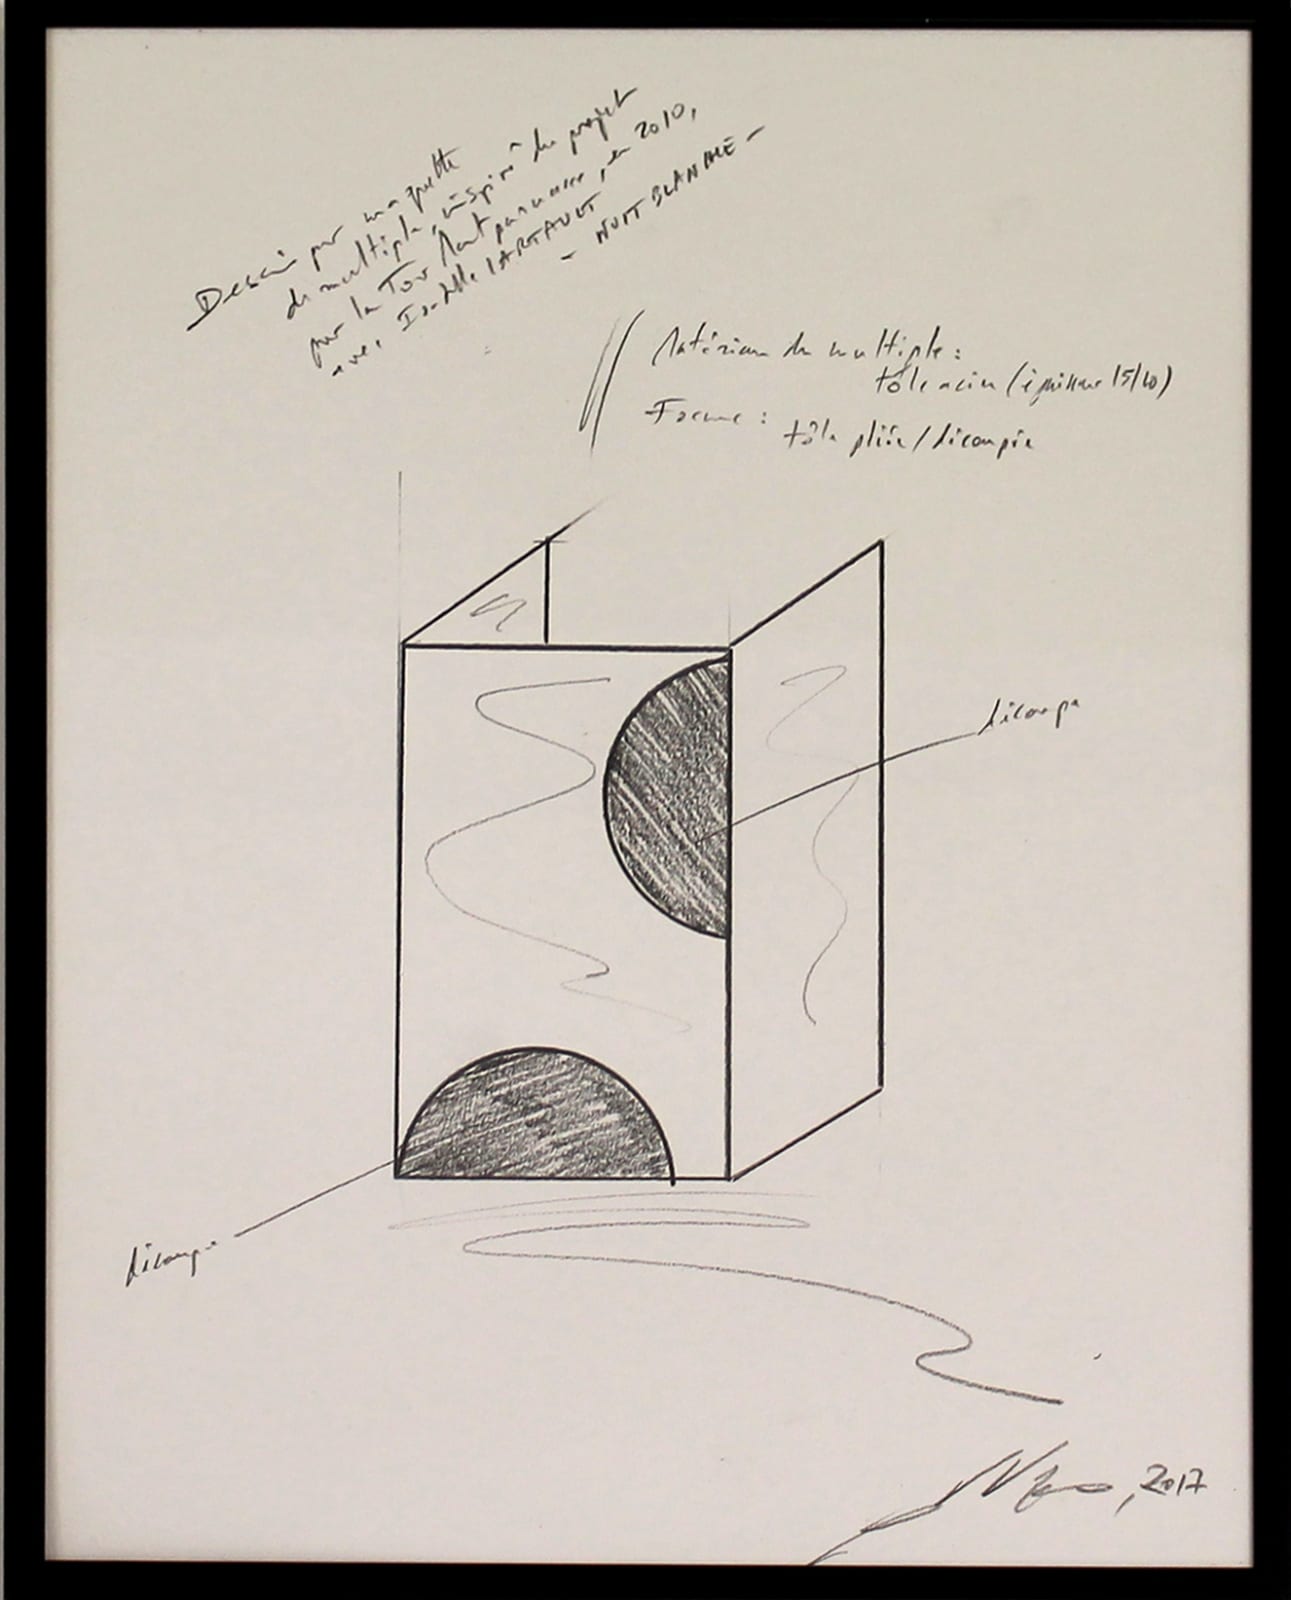 Dessin pour maquette
de multiple, inspiré du projet
pour la Tour Montparnasse, en 2010,
avec Isabelle LARTAULT
- NUIT BLANCHE -
Matériau du multiple :
tôle acier (épaisseur 15/10)
Forme : tôle pliée / découpée
découpe
découpe
, 2017